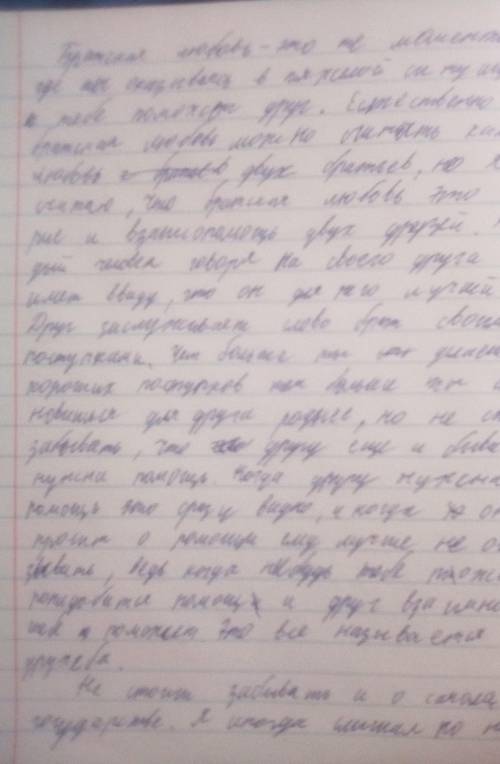 Братская любовь - это те моменты
где ты оказываешь в тяжелой ситуац
и тебе поможет друг. Естественно
братская любовь можно считать как
любовь двух братьев, но я
считаю, что братская любовь это
рие и взаимопомощь двух друзей.
дый человек говоря на своего друга
имет ввиду, что он для него лучший
Друг заслуживает слово брат своими
поступками. Чем больше ты
хороших поступков тем больше ты
новишься для друга роднее, но не ст
забывать, что другу еще и быва
нужна помощь. Когда другу нужна
помощь это сразу видно, и когда он
просит о помощи ему лучше не о
зывать, ведь когда нибудь тебе тоже
понадобится помощь и друг взаимно
тебе поможет это все называется
дружба.
Не стоит забывать и о
государстве. Я иногда слышал по